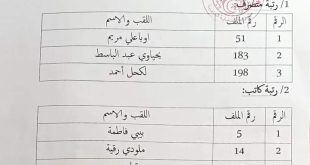 1/ رتبة متصرف:
الرقم رقم الملف اللقب والاسم
1 51 اوباعلي مريم
2 183 يحياوي عبد الباسط
3 198 لكحل أحمد
2/ رتبة كاتب:
الرقم رقم الملف اللقب والاسم
1 5 بيبي فاطمة
2 14 ملودي رقية